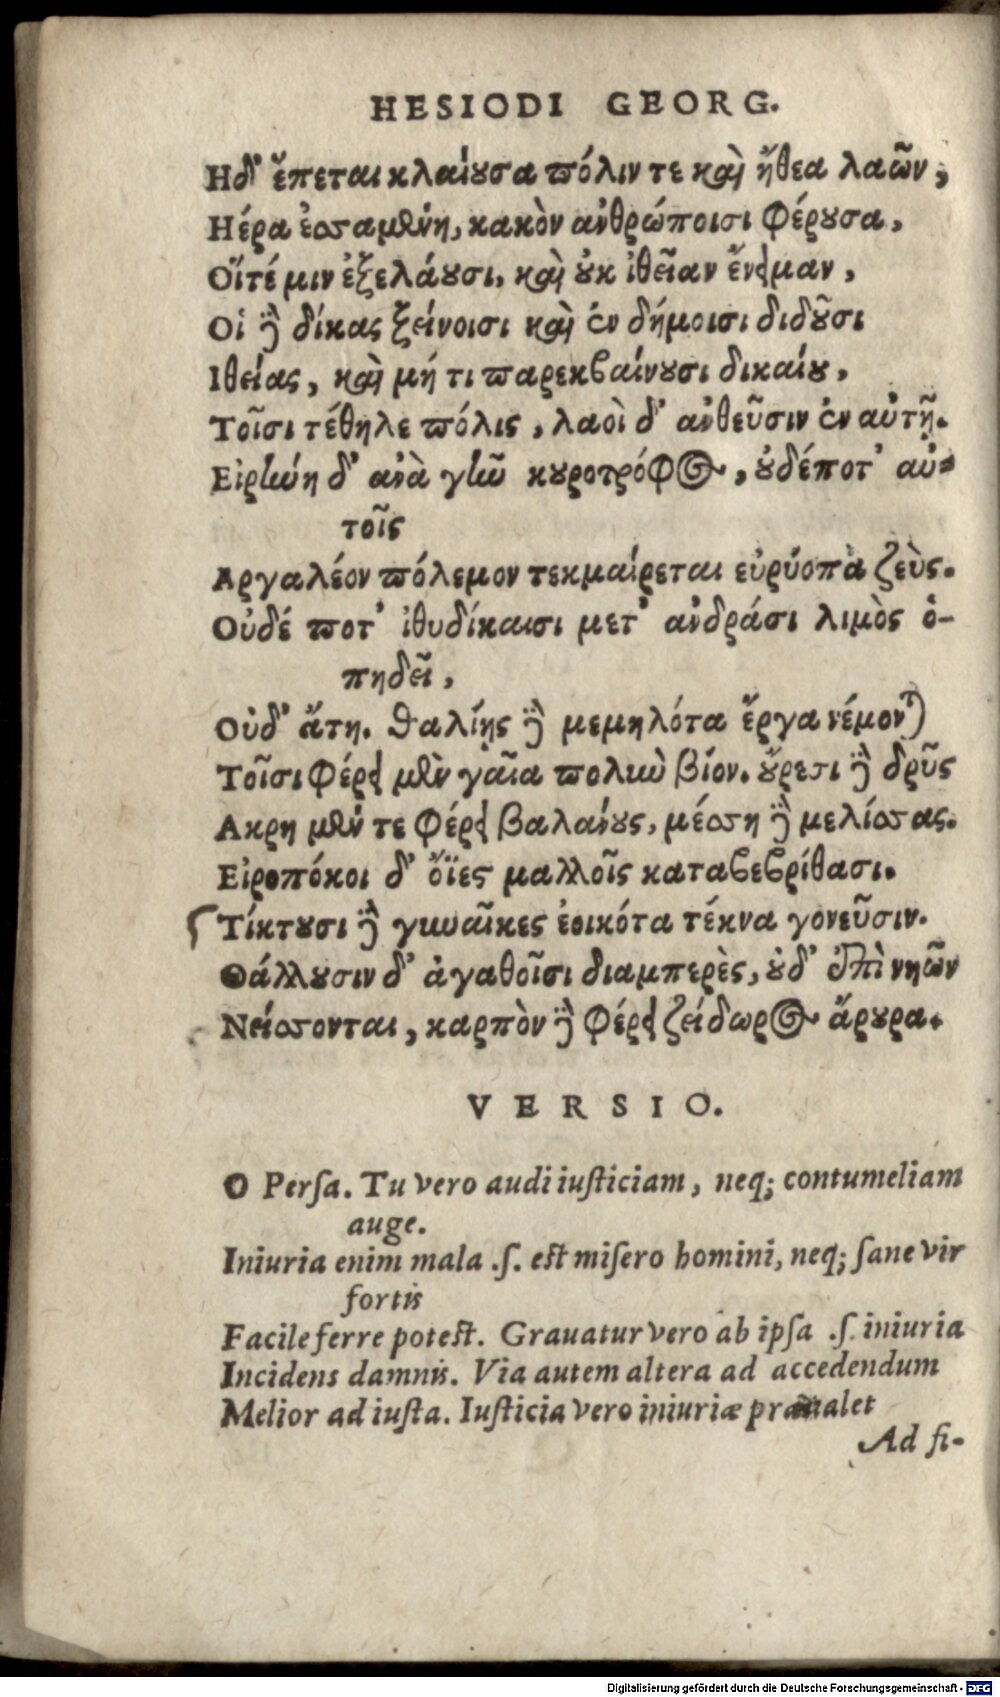 HESIODI GEORG.
Ηδ' ἕπεται κλαίουσα πόλιν τε καὶ ἤθεα λαῶν,
Ηέρα ἑσσαμένη, κακὸν ἀνθρώποισι φέρουσα,
Οἵτέ μιν ἐξελάουσι, καὶ οὐκ ἰθεῖαν ἔνειμαν,
Οἱ δὲ δίκας ξείνοισι καὶ ἐν δήμοισι διδοῦσι
Ιθείας, καὶ μή τι παρεκβαίνουσι δικαίου,
Τοῖσι τέθηλε πόλις, λαοὶ δ' ἀνθεῦσιν ἐν αὐτῇ.
Εἰρήνη δ' ἀνὰ γῆν κουροτρόφος, οὐδέποτ' αὐ-
τοῖς
Αργαλέον πόλεμον τεκμαίρεται εὐρύοπα ζεὺς.
Οὐδέ ποτ' ἰθυδίκαισι μετ' ἀνδράσι λιμὸς ὀ-
πηδεῖ,
Οὐδ' ἄτη. θαλίῃς δὲ μεμηλότα ἔργα νέμονται
Τοῖσι φέρει μὲν γαῖα πολὺν βίον. οὔρεσι δὲ δρῦς
Ακρη μέν τε φέρει βαλάνους, μέσση δὲ μελίσσας.
Εἰροπόκοι δ' ὄϊες μαλλοῖς καταβεβρίθασι.
Τίκτουσι δὲ γυναῖκες ἐοικότα τέκνα γονεῦσιν.
Θάλλουσιν δ' ἀγαθοῖσι διαμπερὲς, οὐδ' ἐπὶ νηῶν
Νείσσονται, καρπὸν δὲ φέρει ζείδωρος ἄρουρα.
VERSIO.
O Perſa. Tu vero audi iuſticiam, neq; contumeliam
auge.
Iniuria enim mala .ſ. eſt miſero homini, neq; ſane vir
fortis
Facile ferre poteſt. Grauatur vero ab ipſa .ſ. iniuria
Incidens damnis. Via autem altera ad accedendum
Melior ad iuſta. Iuſticia vero iniuriæ præualet
Ad fi-
Digitalisierung gefördert durch die Deutsche Forschungsgemeinschaft - DFG